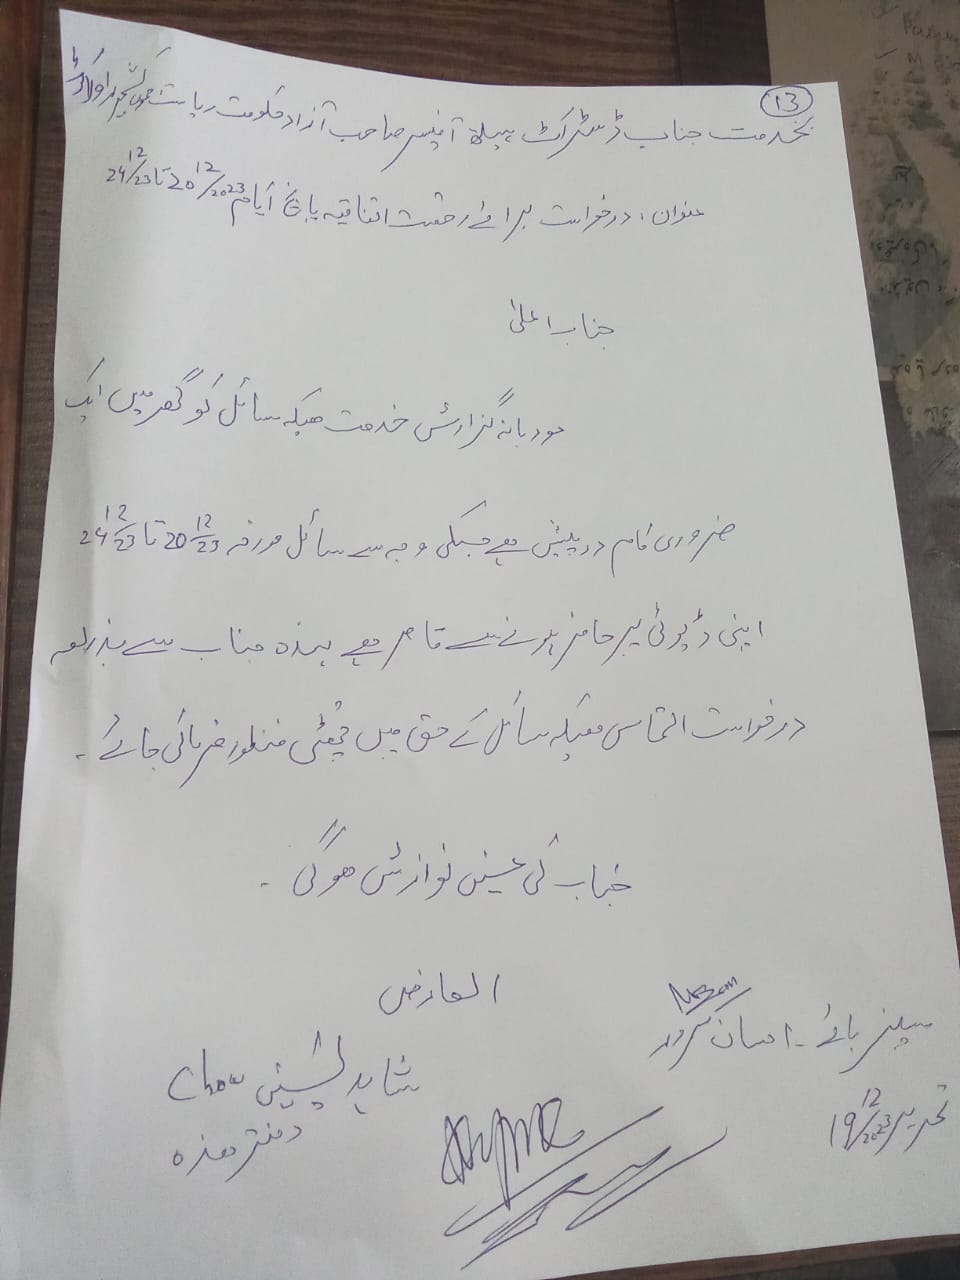 13
بخدمت جناب ڈسٹرکٹ ہیلتھ آفیسر صاحب آزاد حکومت ریاست جموں کشمیر راولاکوٹ
عنوان: درخواست برائے رخصت اتفاقیہ پانچ ایام 20/12/2023 تا 24/12/23
جناب اعلیٰ
مودبانہ گزارش خدمت ہیکہ سائل کو گھر میں ایک
ضروری کام درپیش ہے جسکی وجہ سے سائل مورخہ 20 12/23 تا 24 12/23
اپنی ڈیوٹی پر حاضر ہونے سے قاصر ہے بندہ جناب سے بذریعہ
درخواست التماس ہیکہ سائل کے حق میں چھٹی منظور فرمائی جائے۔
جناب کی عین نوازش ہوگی۔
العارض
سپلنر بائے۔ احسان سرور
شاہد
دفتر ھذہ
تحریر 19/12/2023